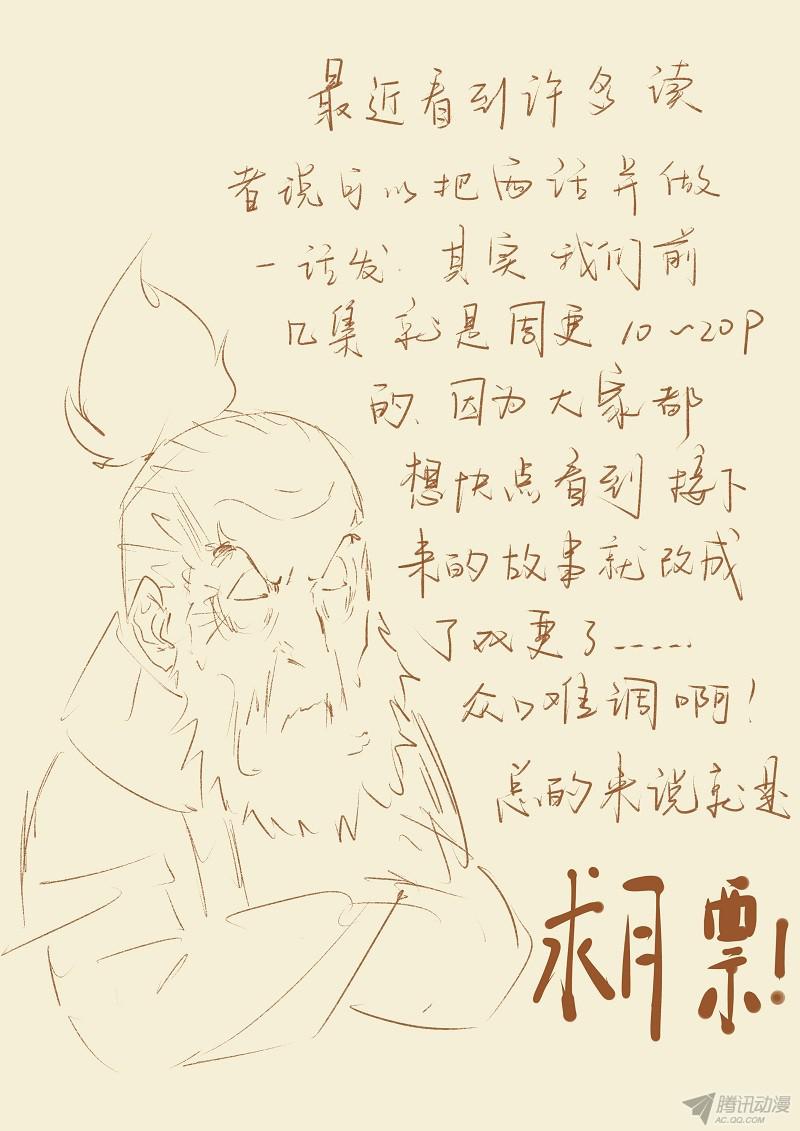 最近看到许多读
者说可以把两话并做
一话发.其实我们前
几集就是周更10~20P
的、因为大家都
想快点看到接下
来的故事就改成
了双更了……
众口难调啊!
总的来说就是
求月票!
腾讯动漫
AC.QQ.COM